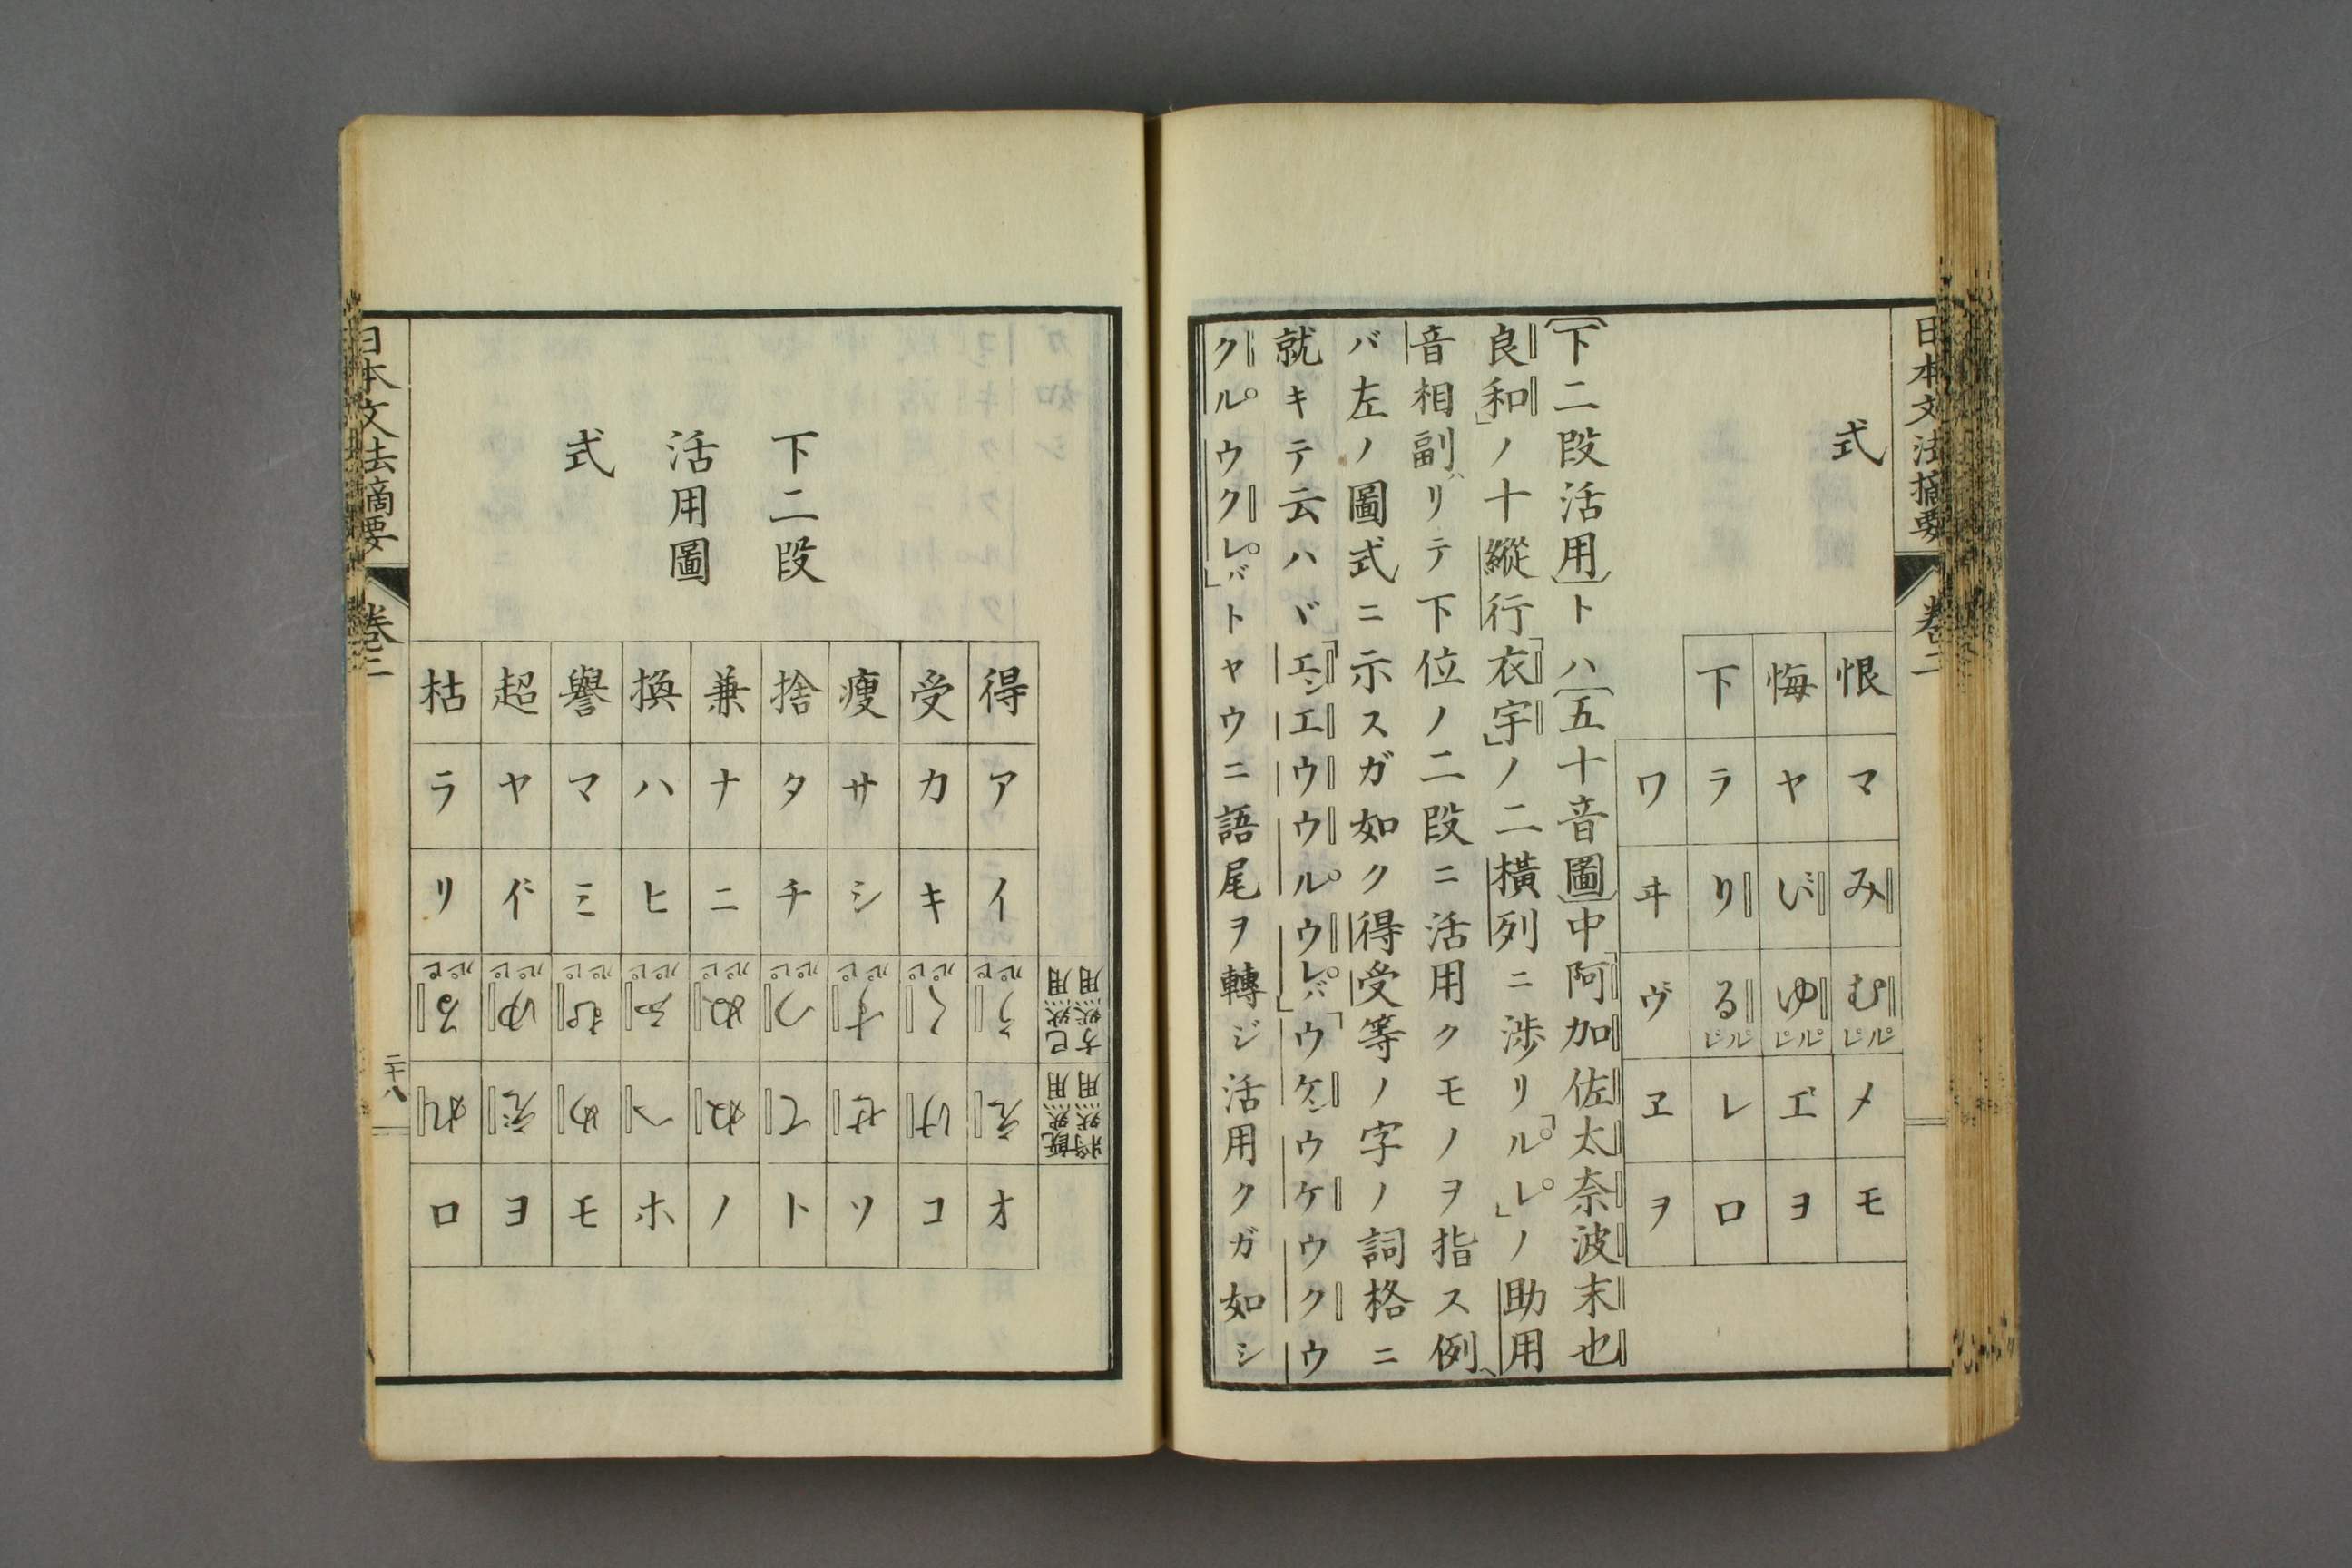 日本文法摘要
卷二
式
恨 マ み む ル レ メ モ
悔 ヤ ゆ ル レ ヨ
下 ラ り る ル レ レ ロ
ワ ヰ ヱ ヲ
〔下二段活用〕トハ〔五十音圖〕中「阿加佐太奈波末也
良和」ノ十縱行「衣宇」ノ二橫列ニ渉リ「ル レ」ノ助用
音相副ハリテ下位ノ二段ニ活用クモノヲ指ス例ヘ
バ左ノ圖式ニ示スガ如ク得受等ノ字ノ詞格ニ
就キテ云ハヾ「エン エ ウ ウル ウレバ」「ウケン ウケ ウク ウ
クル ウクレバ」トヤウニ語尾ヲ轉ジ活用クガ如シ
下二段
活用圖
式
方然用 已然用
將然用 既然用
得 ア イ う ル レ え オ
受 カ キ く ル レ け コ
瘦 サ シ す ル レ せ ソ
捨 タ チ つ ル レ て ト
兼 ナ ニ ぬ ル レ ね ノ
換 ハ ヒ ふ ル レ へ ホ
譽 マ ミ む ル レ め モ
超 ヤ ゆ ル レ ヨ
枯 ラ リ る ル レ れ ロ
日本文法摘要
卷二
二十八